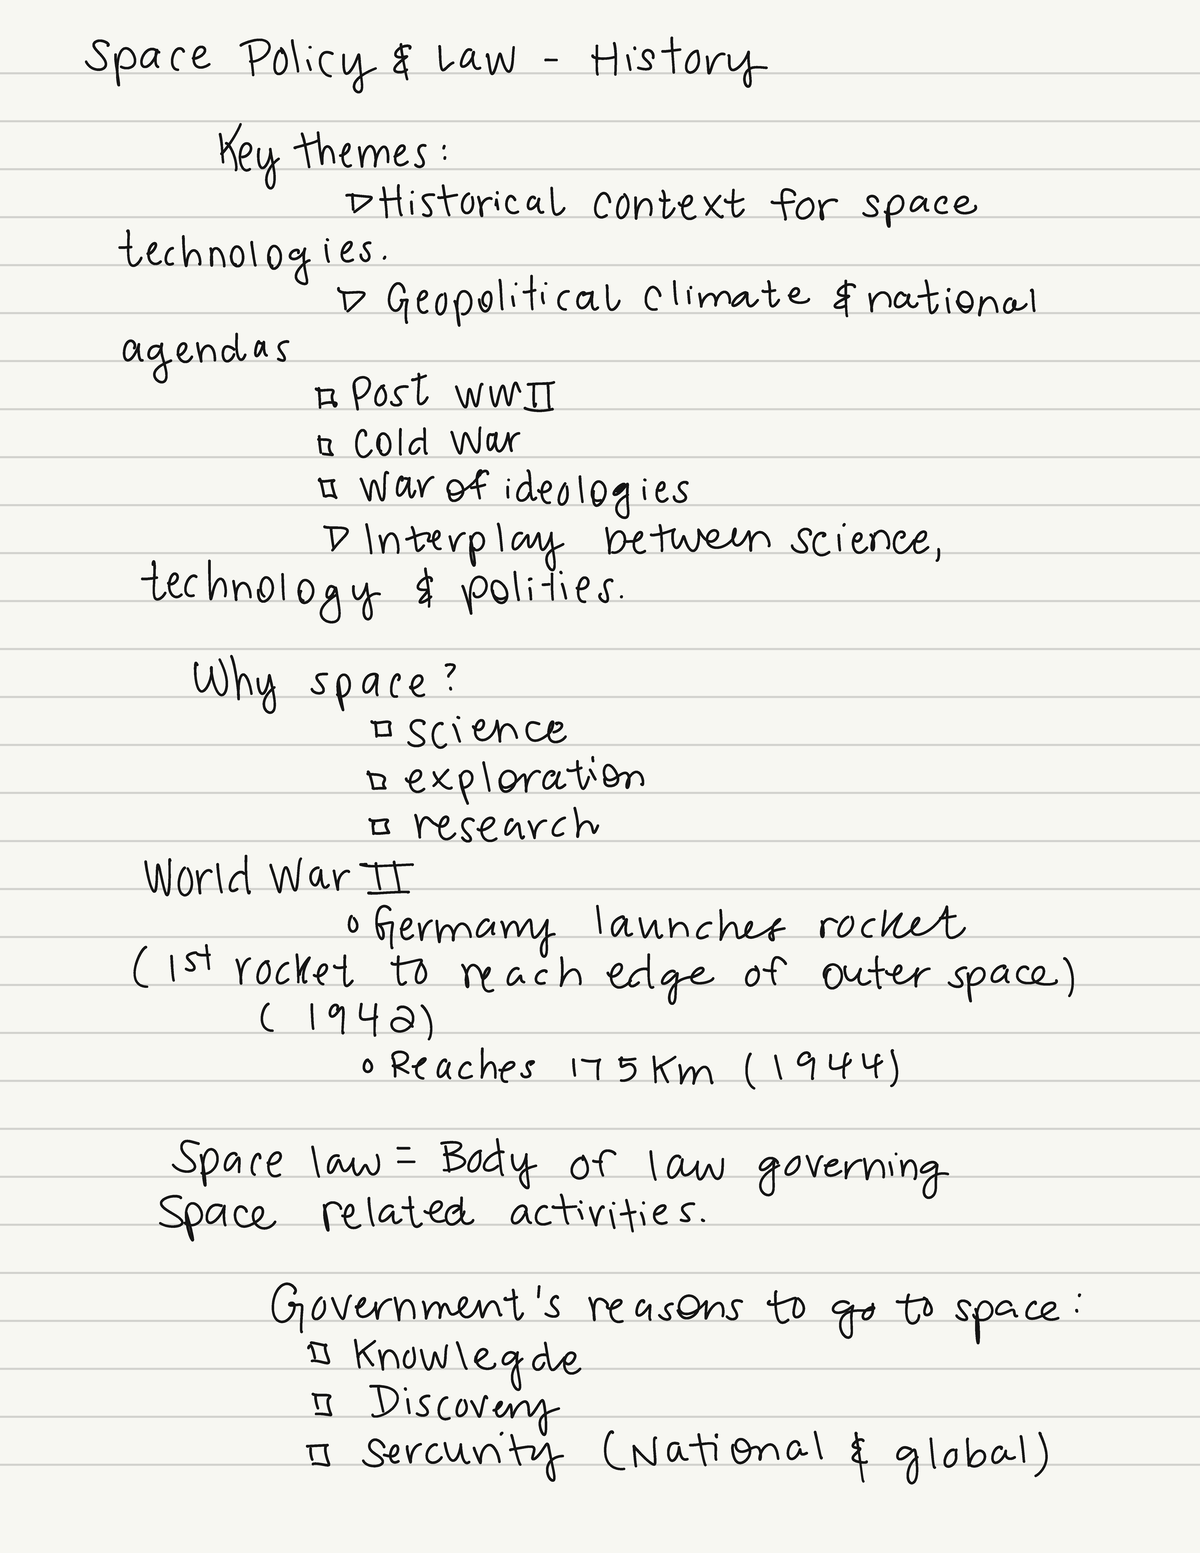 Space Policy & Law - History
Key themes:
▷Historical context for space
technologies.
▷ Geopolitical climate & national
agendas
▫ Post WWII
▫ Cold War
▫ War of ideologies
▷ Interplay between science,
technology & polities.
Why space?
▫ science
▫ exploration
▫ research
World War II
◦ Germany launches rocket
(1st rocket to reach edge of outer space)
(1942)
◦ Reaches 175 Km (1944)
Space law = Body of law governing
Space related activities.
Government's reasons to go to space:
▫ Knowlegde
▫ Discovery
▫ Sercurity (National & global)